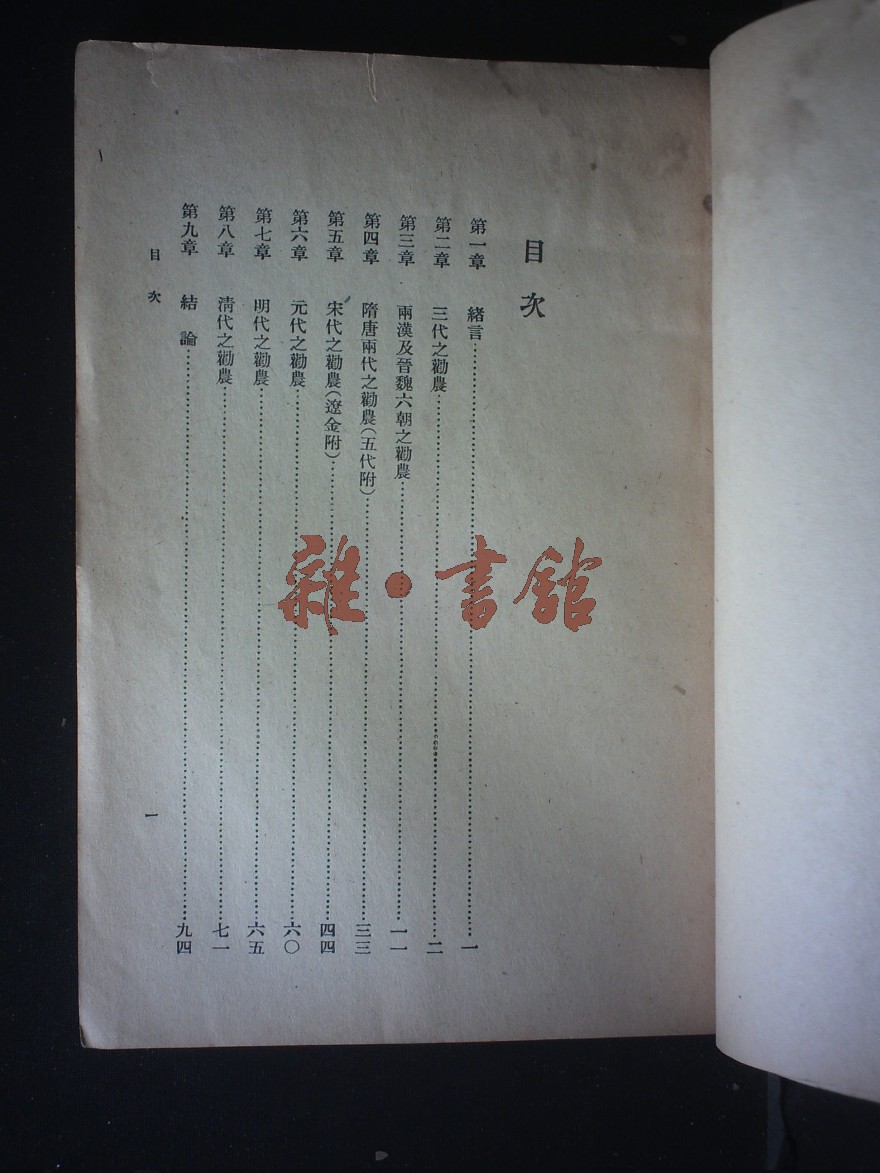 目次
第一章 緒言……一
第二章 三代之勸農……二
第三章 兩漢及晉魏六朝之勸農……一一
第四章 隋唐兩代之勸農(五代附)……三三
第五章 宋代之勸農(遼金附)……四四
第六章 元代之勸農……六〇
第七章 明代之勸農……六五
第八章 淸代之勸農……七一
第九章 結論……九四
目次 一
雜·書館